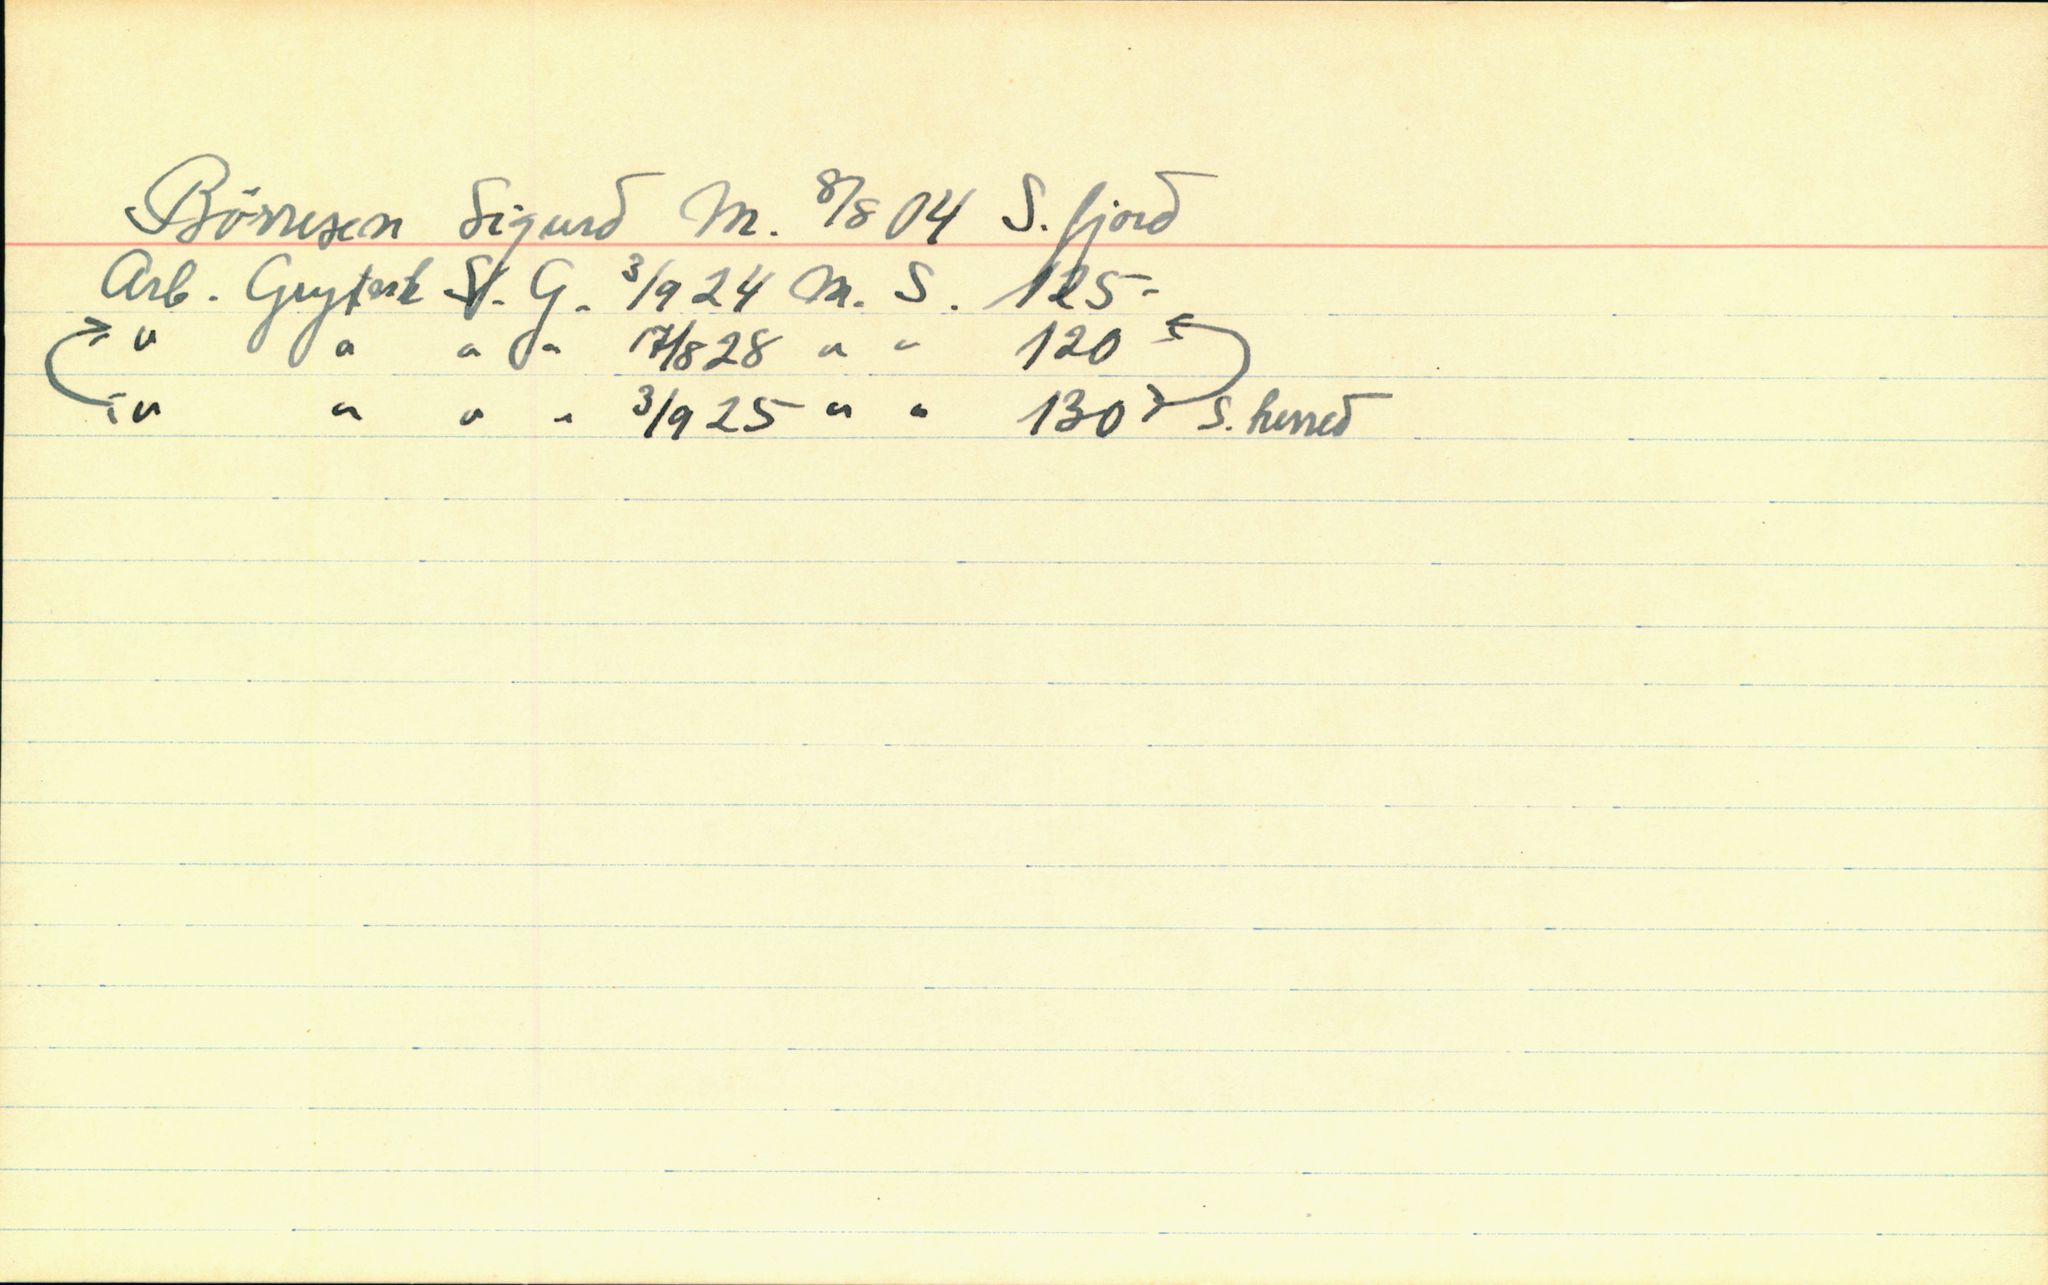 Börresen Sigurd M. 8/8 04 S. fjord
Arb. Grytvik S. G. 3/9 24 M. S. 125-
" " " " 17/8 28 " " 120
" " " " 3/9 25 " " 130 S. herred